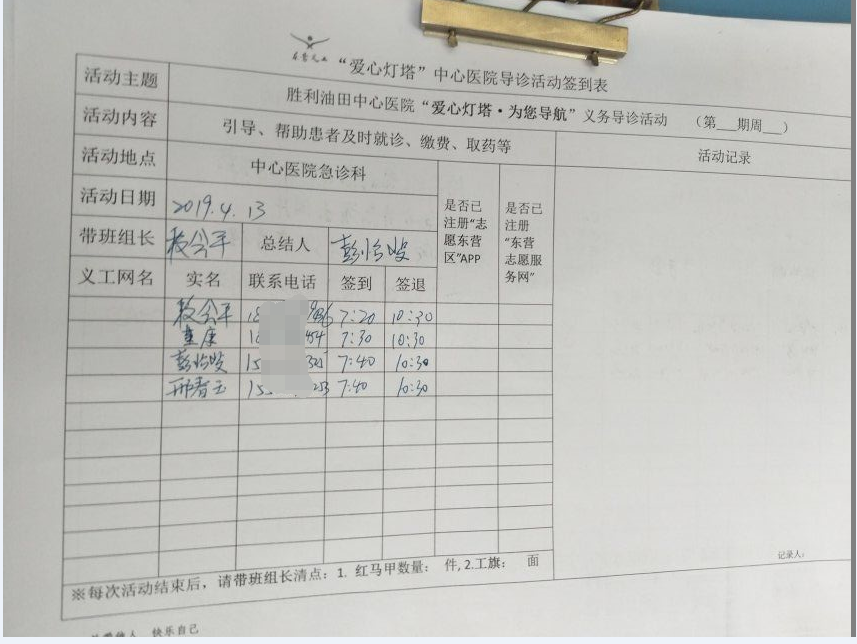 “爱心灯塔”中心医院导诊活动签到表
活动主题 胜利油田中心医院“爱心灯塔·为您导航”义务导诊活动 （第___期周___）
活动内容 引导、帮助患者及时就诊、缴费、取药等 活动记录
活动地点 中心医院急诊科
是否已注册“志愿东营区”APP
是否已注册“东营志愿服务网”
活动日期 2019.4.13
带班组长 总结人
义工网名 实名 联系电话 签到 签退
18 936 7:20 10:30
454 7:30 10:30
15 7:40 10:30
15 253 7:40 10:30
记录人：
※每次活动结束后，请带班组长清点：1. 红马甲数量： 件, 2.工旗： 面
快乐自己